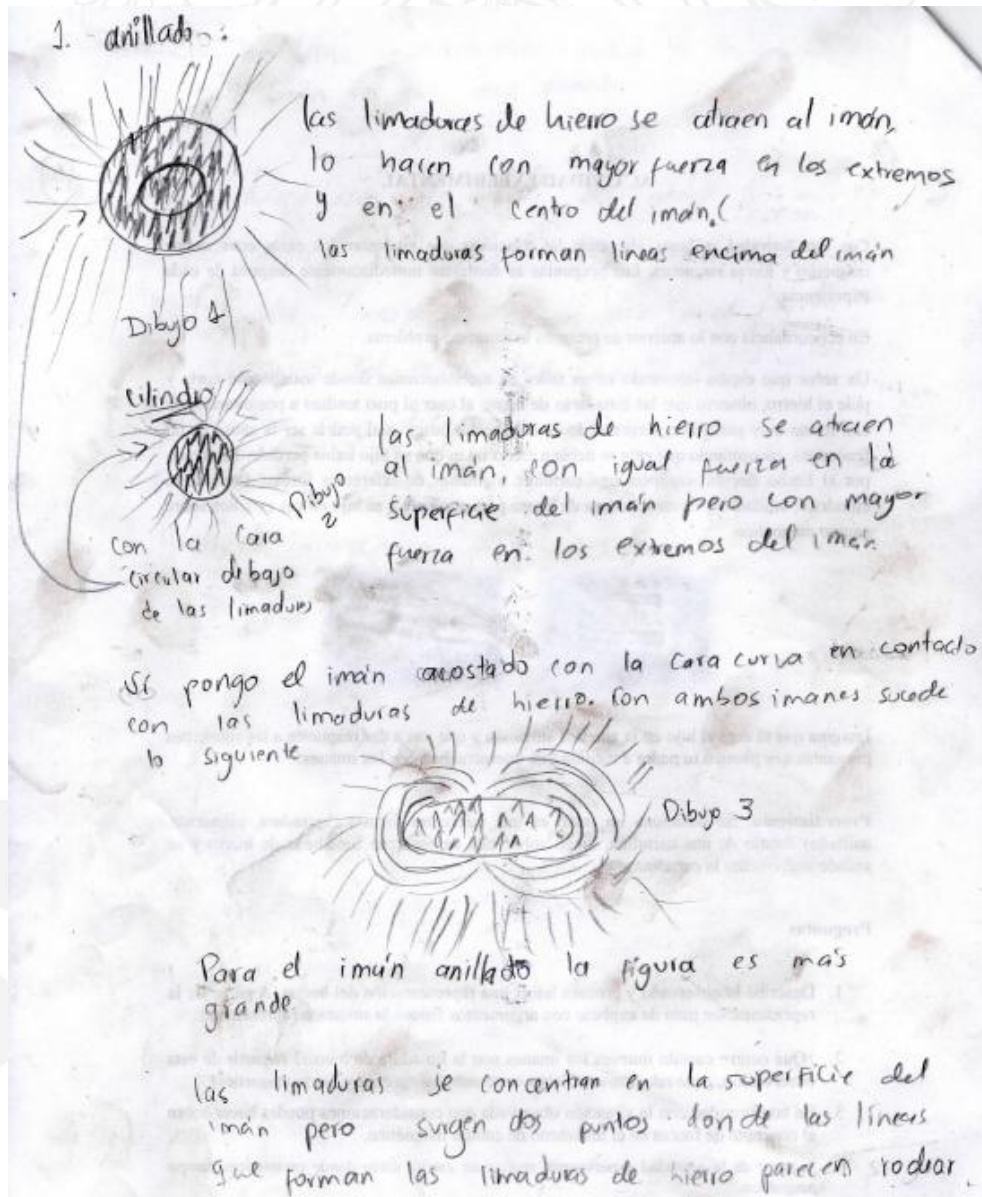 1. anillado:
las limaduras de hierro se atraen al imán,
lo hacen con mayor fuerza en los extremos
y en el centro del imán.(
las limaduras forman líneas encima del imán
Dibujo 1
Cilindro
las limaduras de hierro se atraen
al imán con igual fuerza en la
superficie de imán pero con mayor
fuerza en los extremos del imán
Dibujo 2
con la Cara
circular debajo
de las limaduras
Si pongo el imán acostado con la cara curva en contacto
con las limaduras de hierro. Con ambos imanes sucede
lo siguiente
Dibujo 3
Para el imán anillado la figura es más
grande
las limaduras se concentran en la superficie del
imán pero surgen dos puntos donde las líneas
que forman las limaduras de hierro parecen rodear